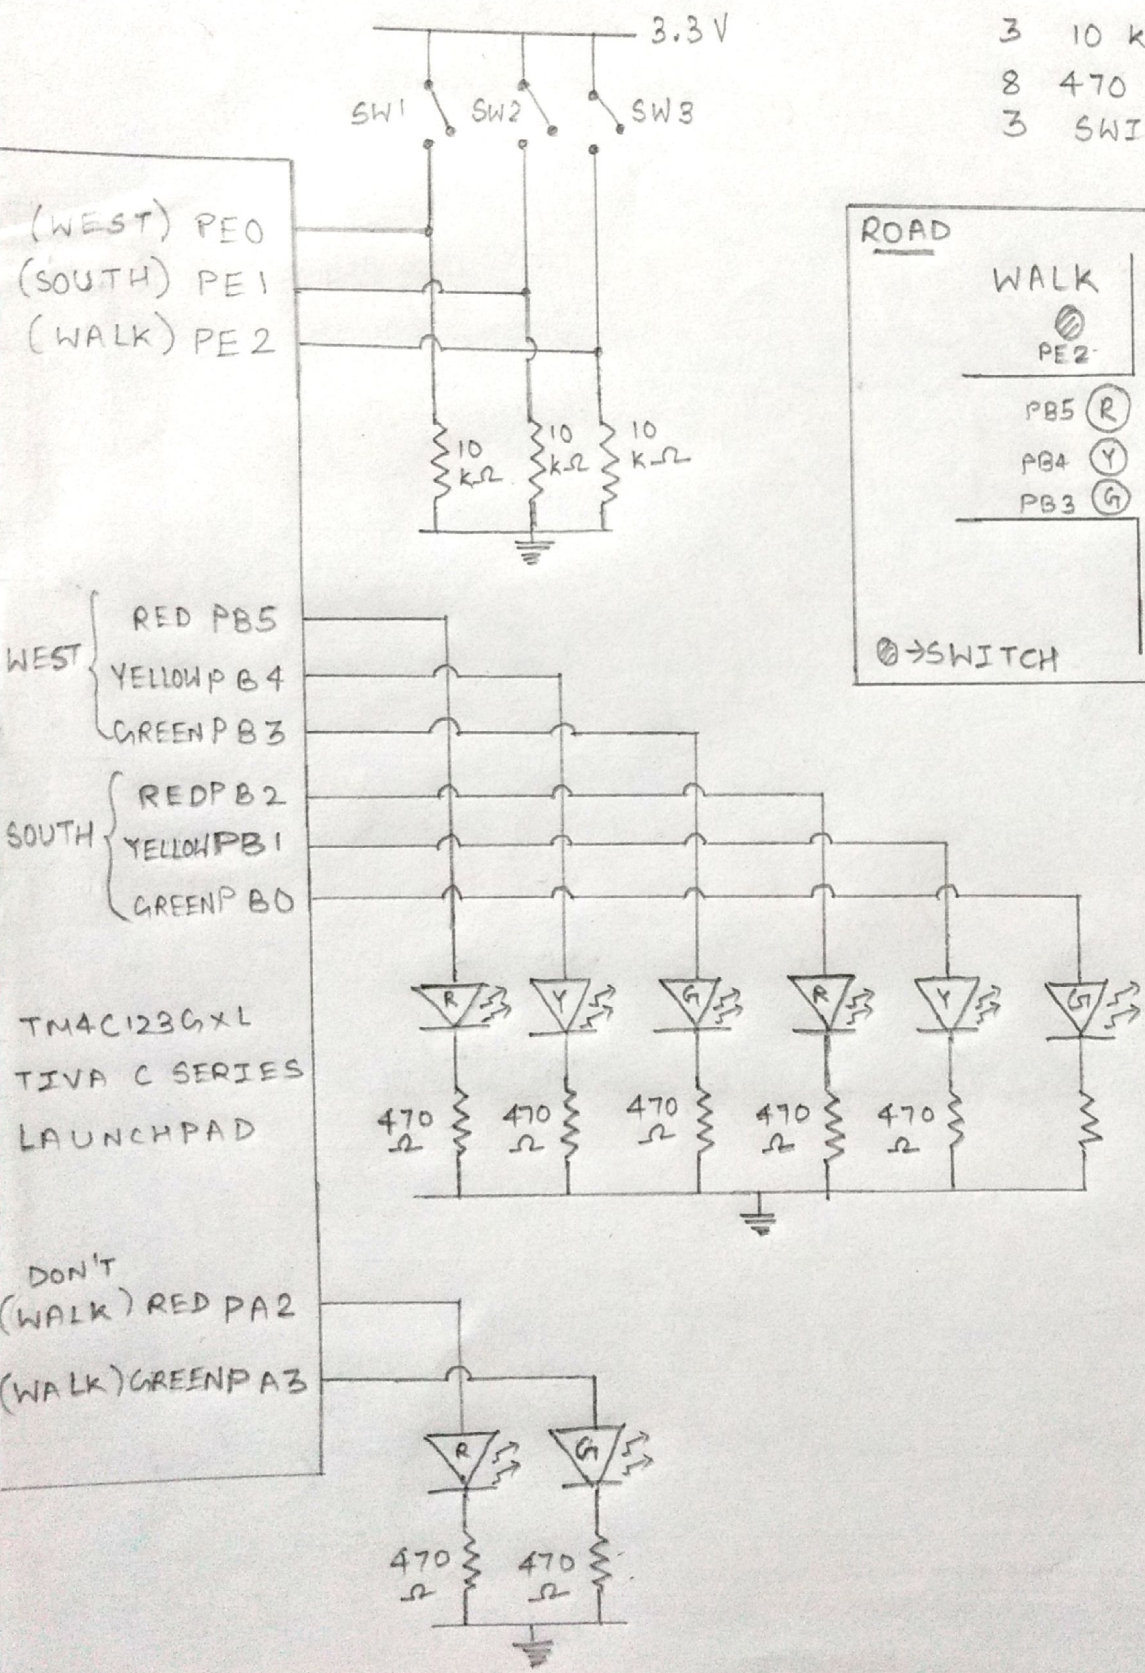 3.3 V
3 10 k
8 470
3 SWI
SW1 SW2 SW3
(WEST) PE0
(SOUTH) PE1
(WALK) PE2
10 kΩ
10 kΩ
10 kΩ
ROAD
WALK
PE2
PB5 R
PB4 Y
PB3 G
→SWITCH
WEST
RED PB5
YELLOW PB4
GREEN PB3
SOUTH
RED PB2
YELLOW PB1
GREEN PB0
R Y G R Y G
470 Ω
470 Ω
470 Ω
470 Ω
470 Ω
TM4C123GXL
TIVA C SERIES
LAUNCHPAD
DON'T
(WALK) RED PA2
(WALK) GREEN PA3
R G
470 Ω
470 Ω